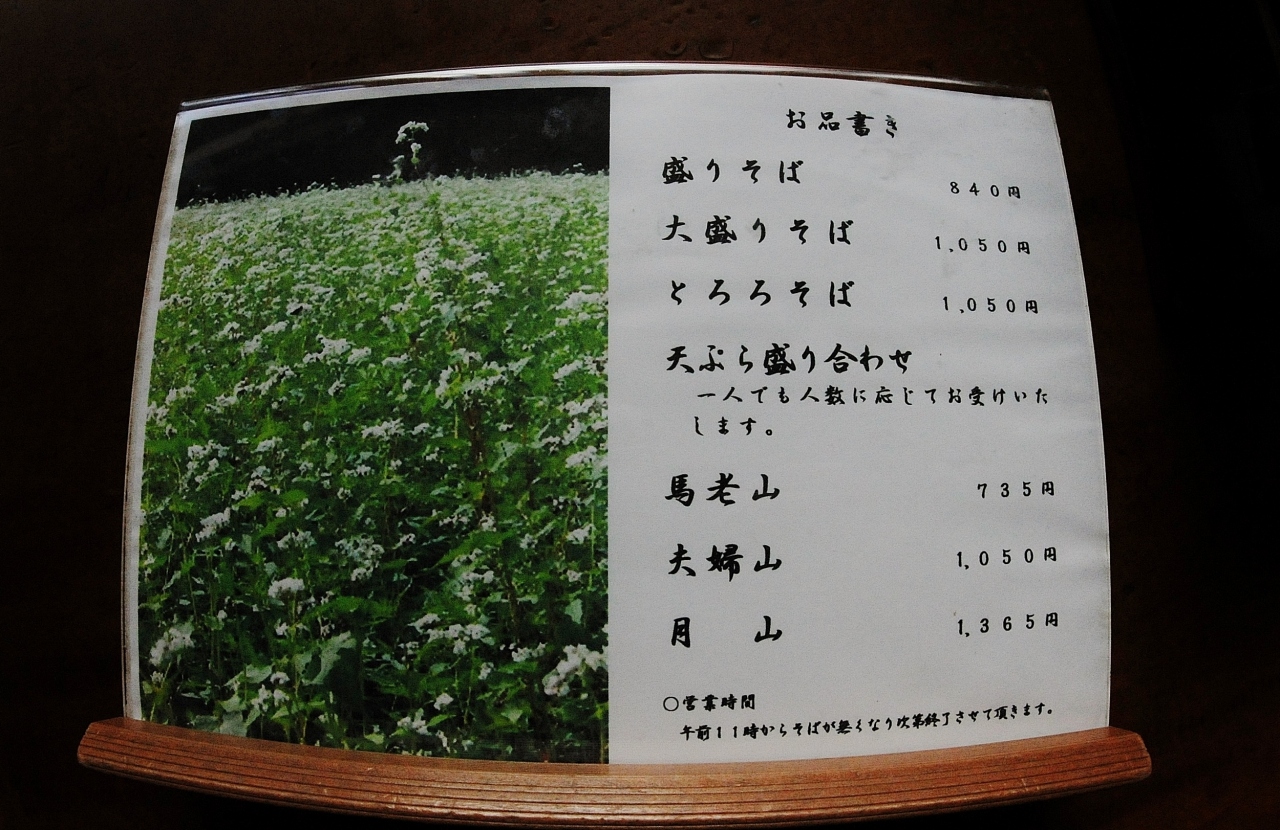 お品書き
盛りそば 840円
大盛りそば 1,050円
とろろそば 1,050円
天ぷら盛り合わせ
一人でも人数に応じてお受けいた
します。
馬老山 735円
夫婦山 1,050円
月 山 1,365円
○営業時間
午前11時からそばが無くなり次第終了させて頂きます。